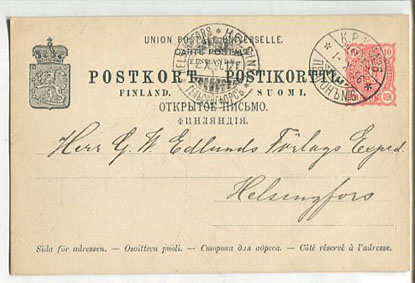 UNION POSTALE UNIVERSELLE.
CARTE POSTALE
POSTKORT. POSTIKORTTI.
FINLAND. SUOMI.
ОТКРЫТОЕ ПИСЬМО.
ФИНЛЯНДІЯ.
10
Herr G. W. Edlunds Förlags Exped.
Helsingfors
Sida för adressen. — Osoitteen puoli. — Сторона для адреса. — Côté réservé à l'adresse.